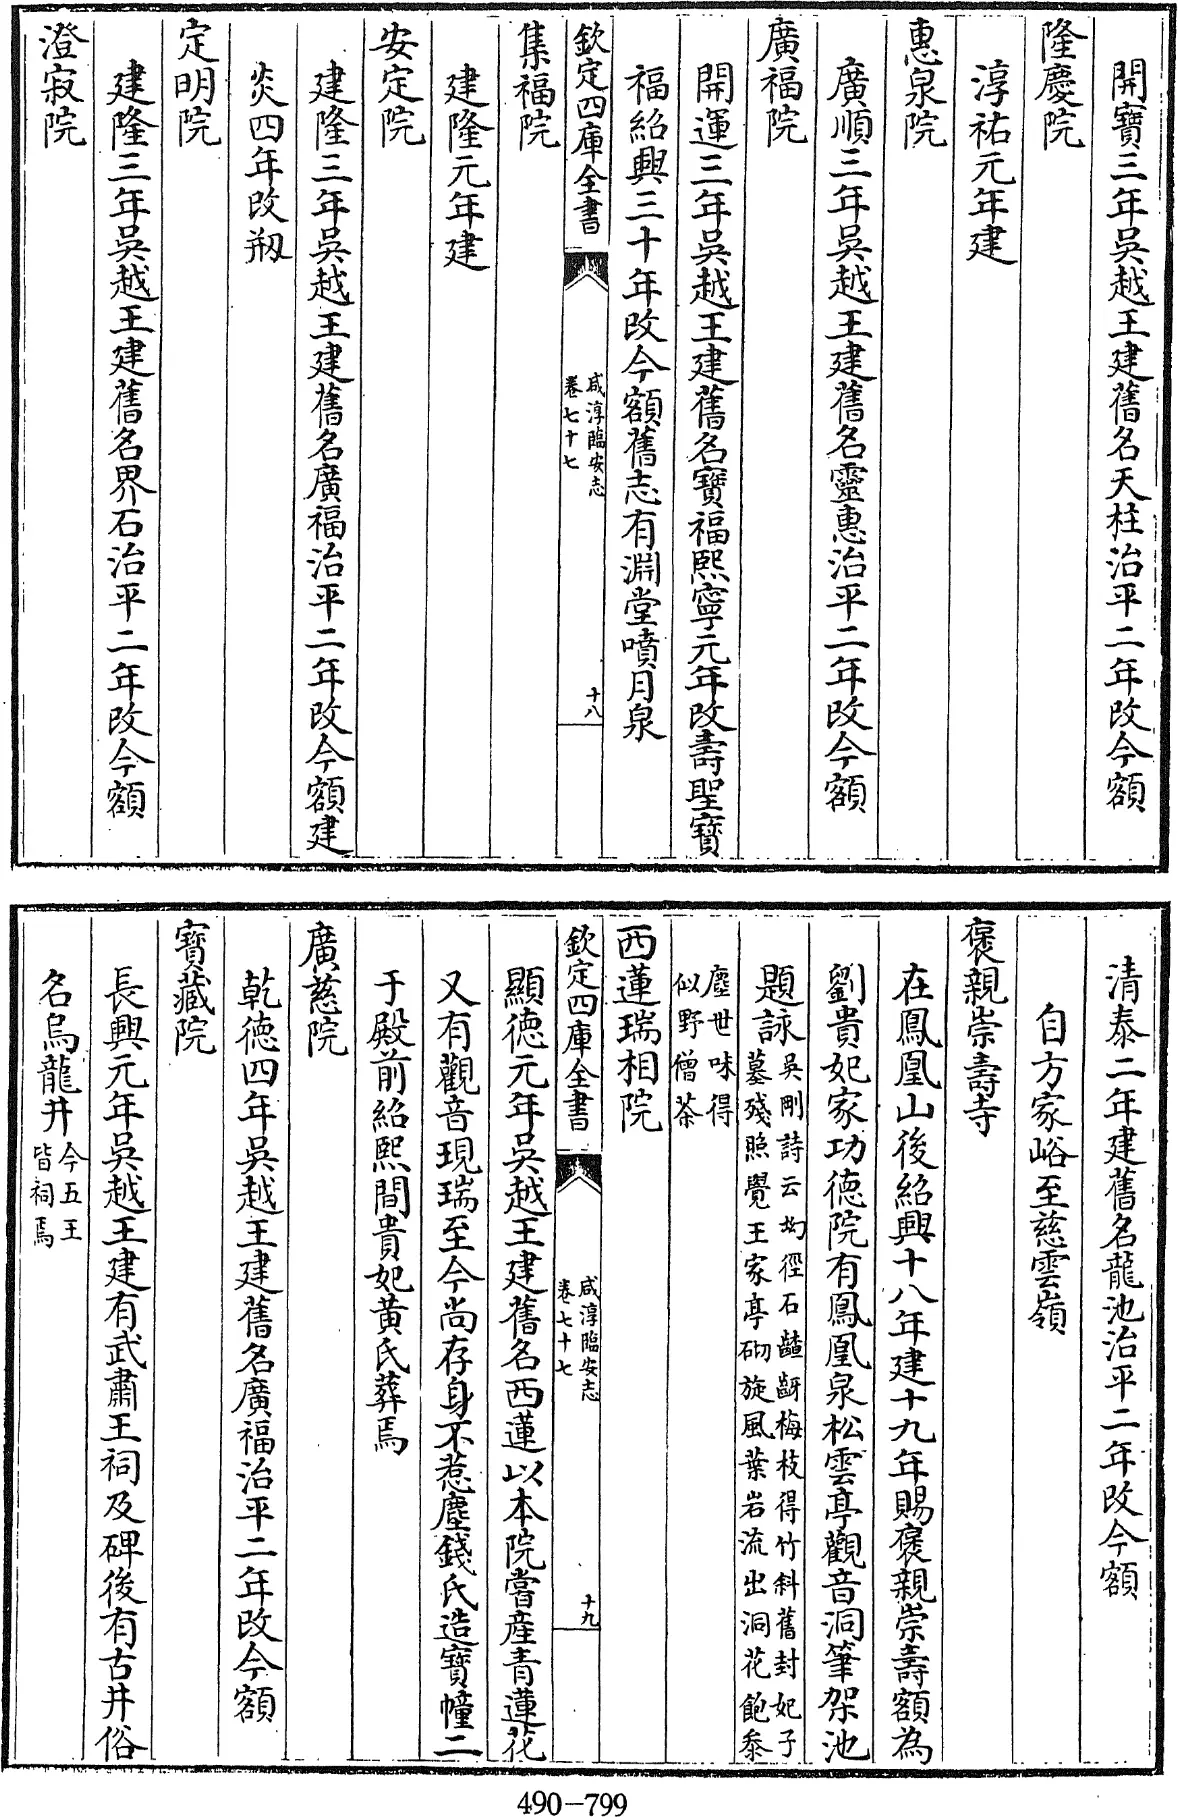 開寶三年吳越王建舊名天柱治平二年改今額
隆慶院
淳祐元年建
惠泉院
廣順三年吳越王建舊名靈惠治平二年改今額
廣福院
開運三年吳越王建舊名寶福熙寧元年改壽聖寶
福紹興三十年改今額舊志有淵堂噴月泉
欽定四庫全書
咸淳臨安志
卷七十七
十八
集福院
建隆元年建
安定院
建隆三年吳越王建舊名廣福治平二年改今額建
炎四年改剏
定明院
建隆三年吳越王建舊名界石治平二年改今額
澄寂院
清泰二年建舊名龍池治平二年改今額
自方家峪至慈雲嶺
褒親崇壽寺
在鳳凰山後紹興十八年建十九年賜褒親崇壽額為
劉貴妃家功德院有鳳凰泉松雲亭觀音洞筆架池
題詠
吳剛詩云拗徑石齾齖梅枝得竹斜舊封妃子
墓殘照覺王家亭砌旋風葉岩流出洞花飽叅
塵世味得
似野僧茶
西蓮瑞相院
欽定四庫全書
咸淳臨安志
卷七十七
十九
顯德元年吳越王建舊名西蓮以本院嘗産青蓮花
又有觀音現瑞至今尚存身不惹塵錢氏造寶幢二
于殿前紹熙間貴妃黃氏葬焉
廣慈院
乾德四年吳越王建舊名廣福治平二年改今額
寶藏院
長興元年吳越王建有武肅王祠及碑後有古井俗
名烏龍井
今五王
皆祠焉
490-799